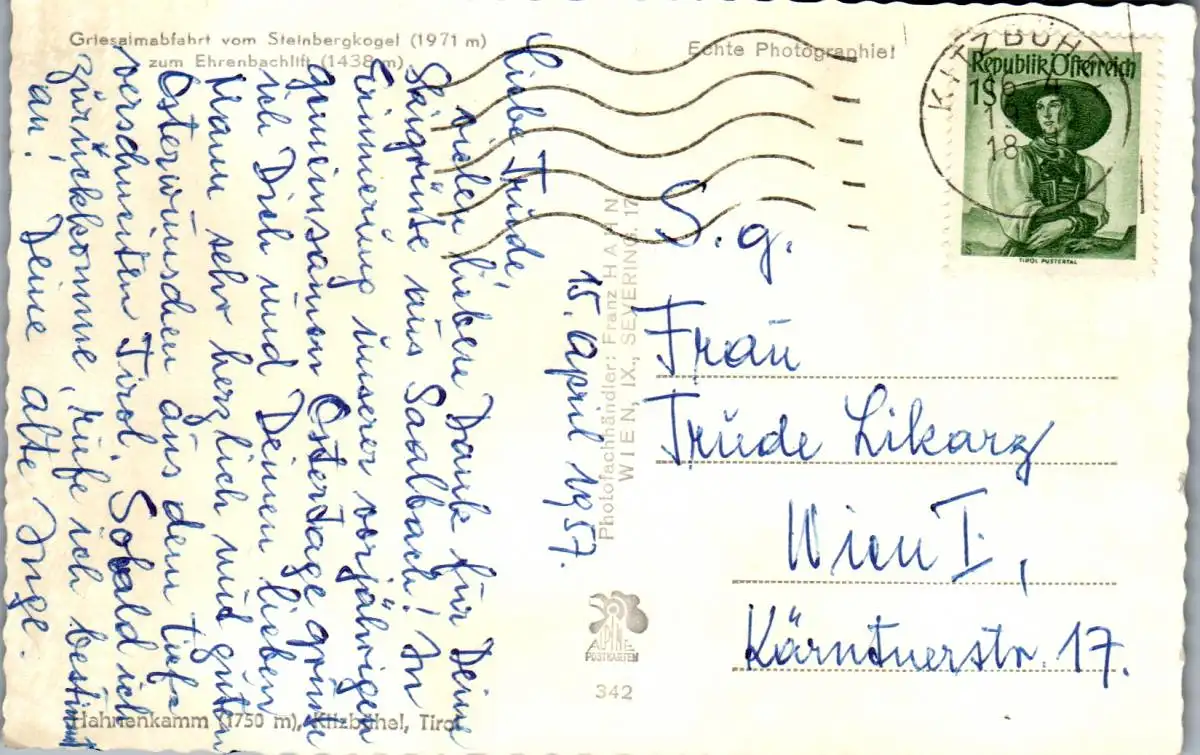 Griesalmabfahrt vom Steinbergkogel (1971 m)
zum Ehrenbachlift (1438 m)
Echte Photographie!
KITZBÜH
Republik Österreich
1S
TIROL PUSTERTAL
Liebe Trude,
vielen lieben Dank für Deine
Skigrüße aus Saalbach! In
Erinnerung unserer vorjährigen
gemeinsamen Ostertage grüße
ich Dich und Deinen lieben
Mann sehr herzlich mit guten
Osterwünschen aus dem tief-
verschneiten Tirol. Sobald ich
zurückkomme, rufe ich bestimmt
an! Deine alte Inge.
15. April 1957.
Photofachhändler: Franz HAHN
WIEN, IX., SEVERING. 17
S. g.
Frau
Trude Likarz
Wien I,
Kärntnerstr. 17.
ALPINE
POSTKARTEN
342
Hahnenkamm (1750 m), Kitzbühel, Tirol